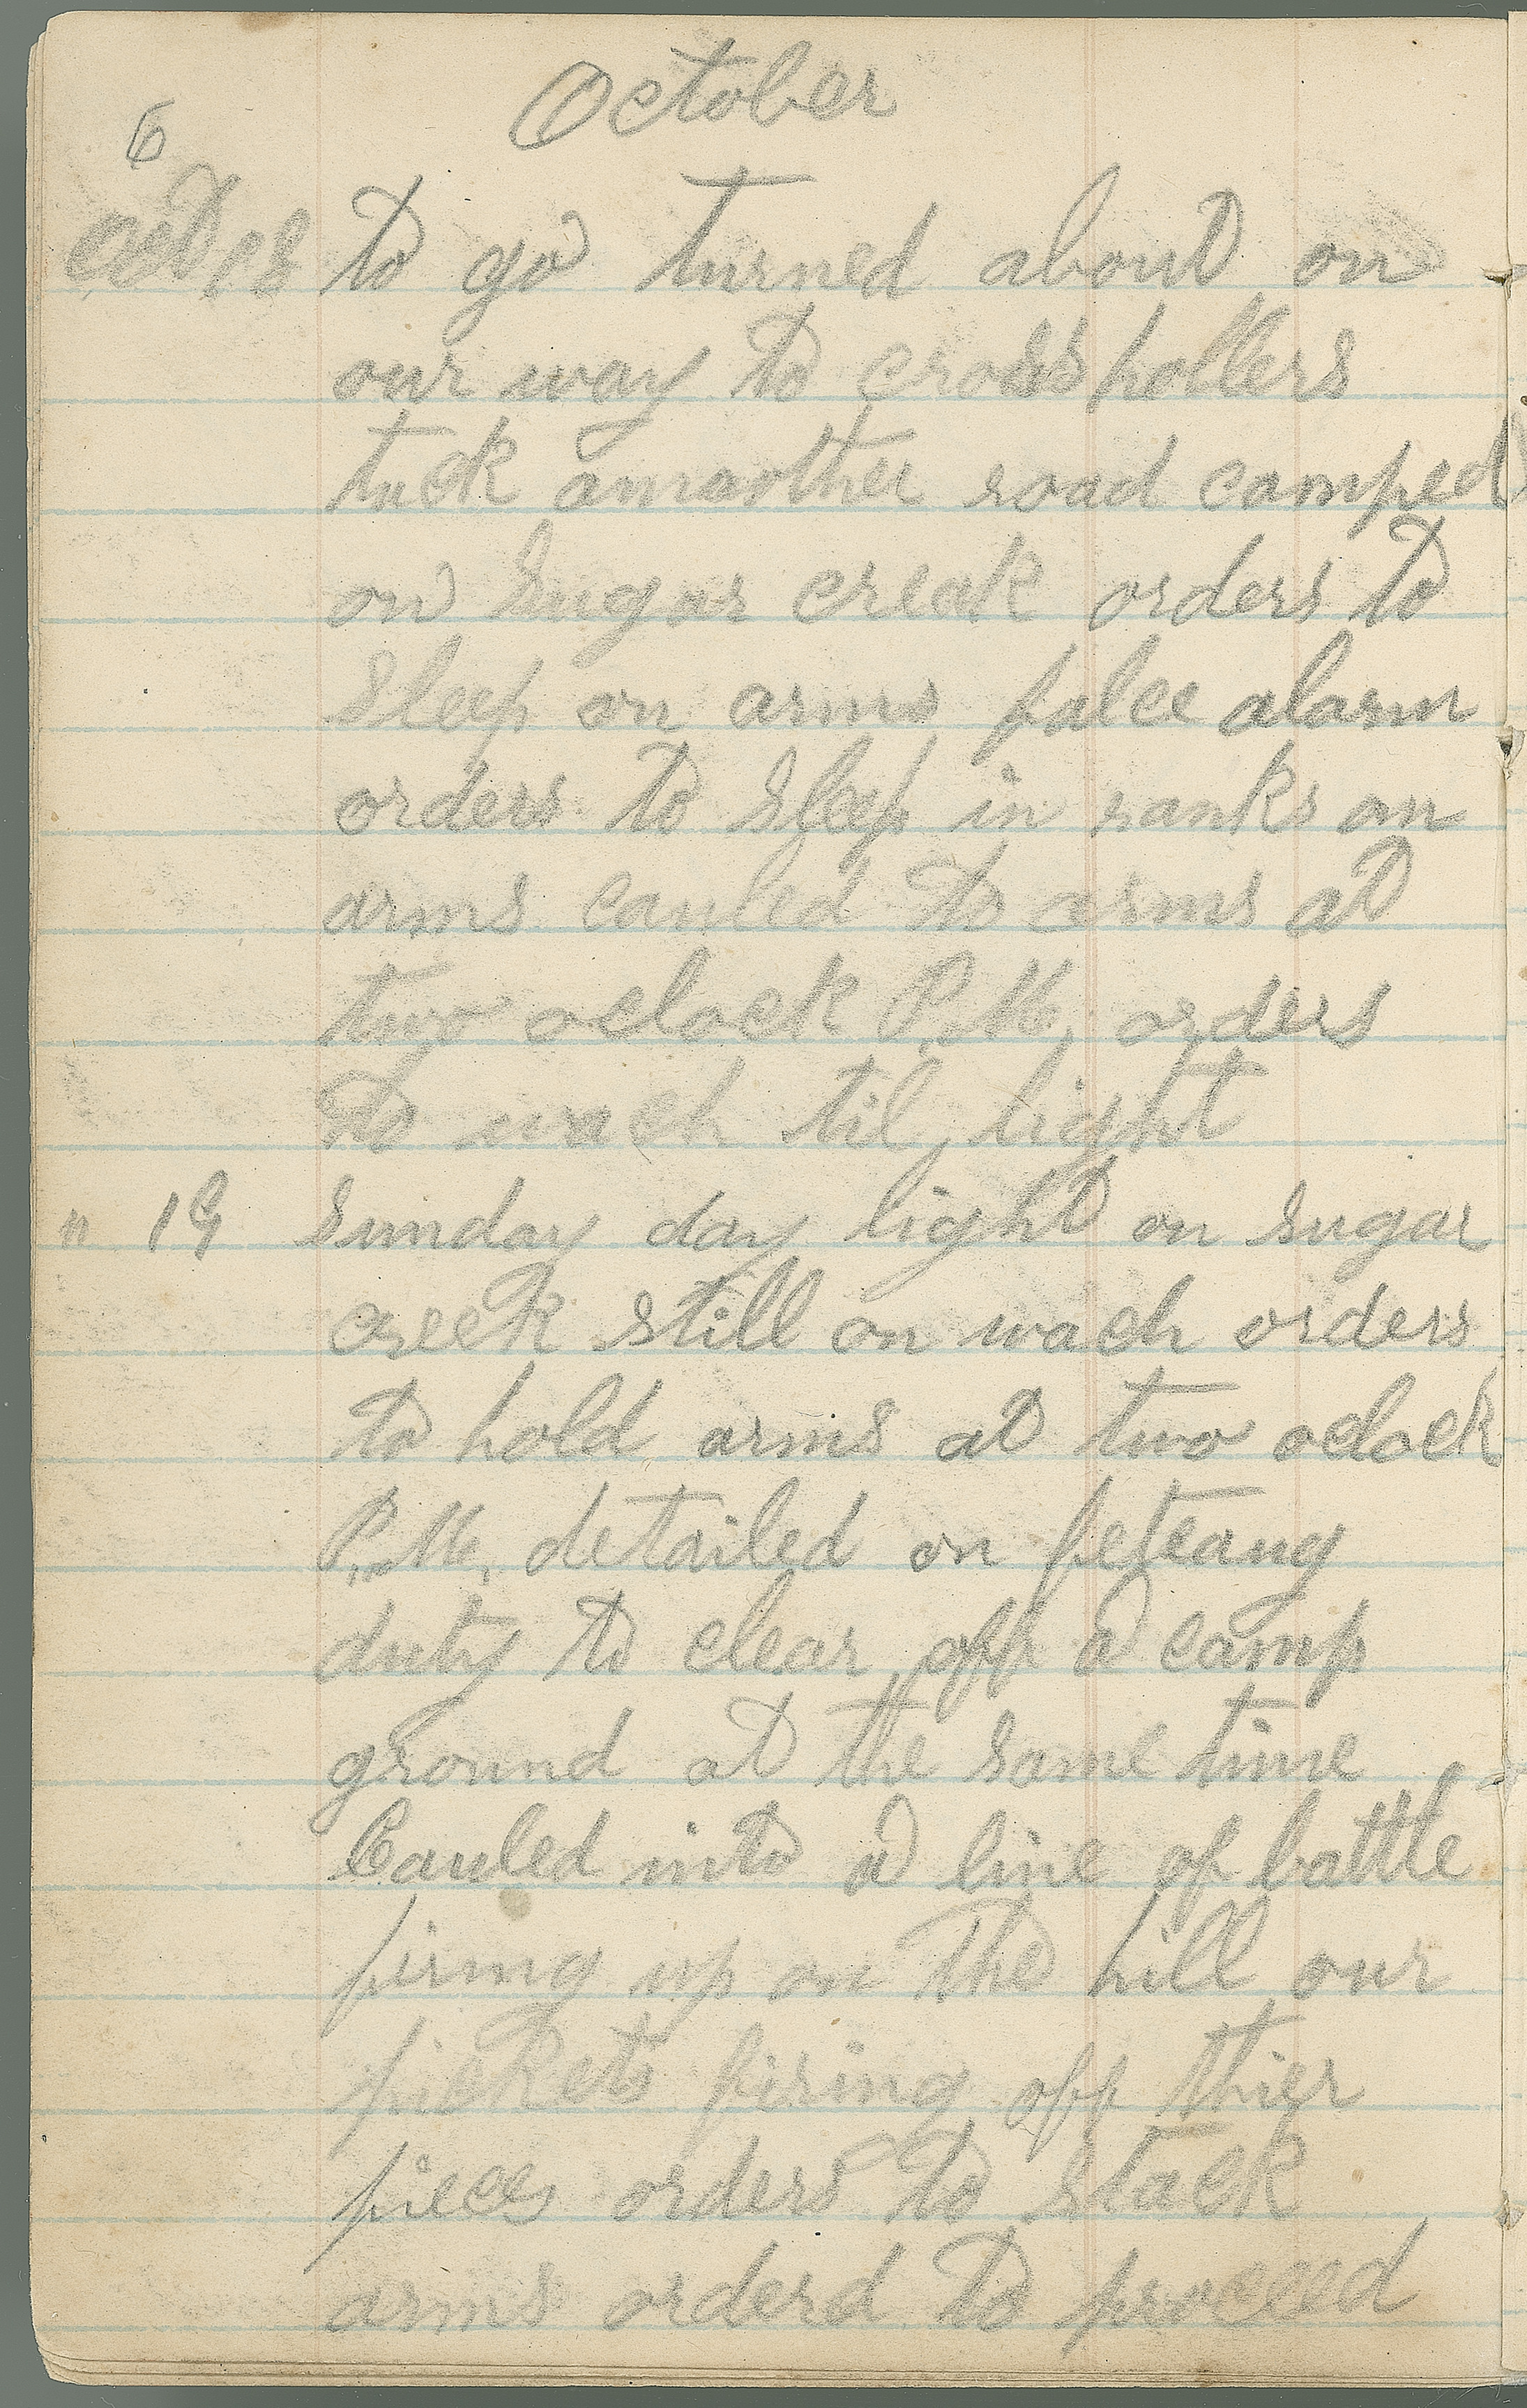 October
6
Oct 18 to go turned about on
our way to cross hollers
tuck amother road camped
on Sugar creak orders to
Sleep on arms falce alarm
orders to Sleep in ranks on
arms cauled to arms at
two oclock P.M, orders
to wach til light
" 19 Sunday day light on Sugar
creek still on wach orders
to hold arms at two oclock
P.M, detailed on feteaug
duty to clear off a camp
ground at the same time
Cauled into a line of battle
firing up on the hill our
pickets firing off thier
pieces orders to stack
arms orderd to proceed